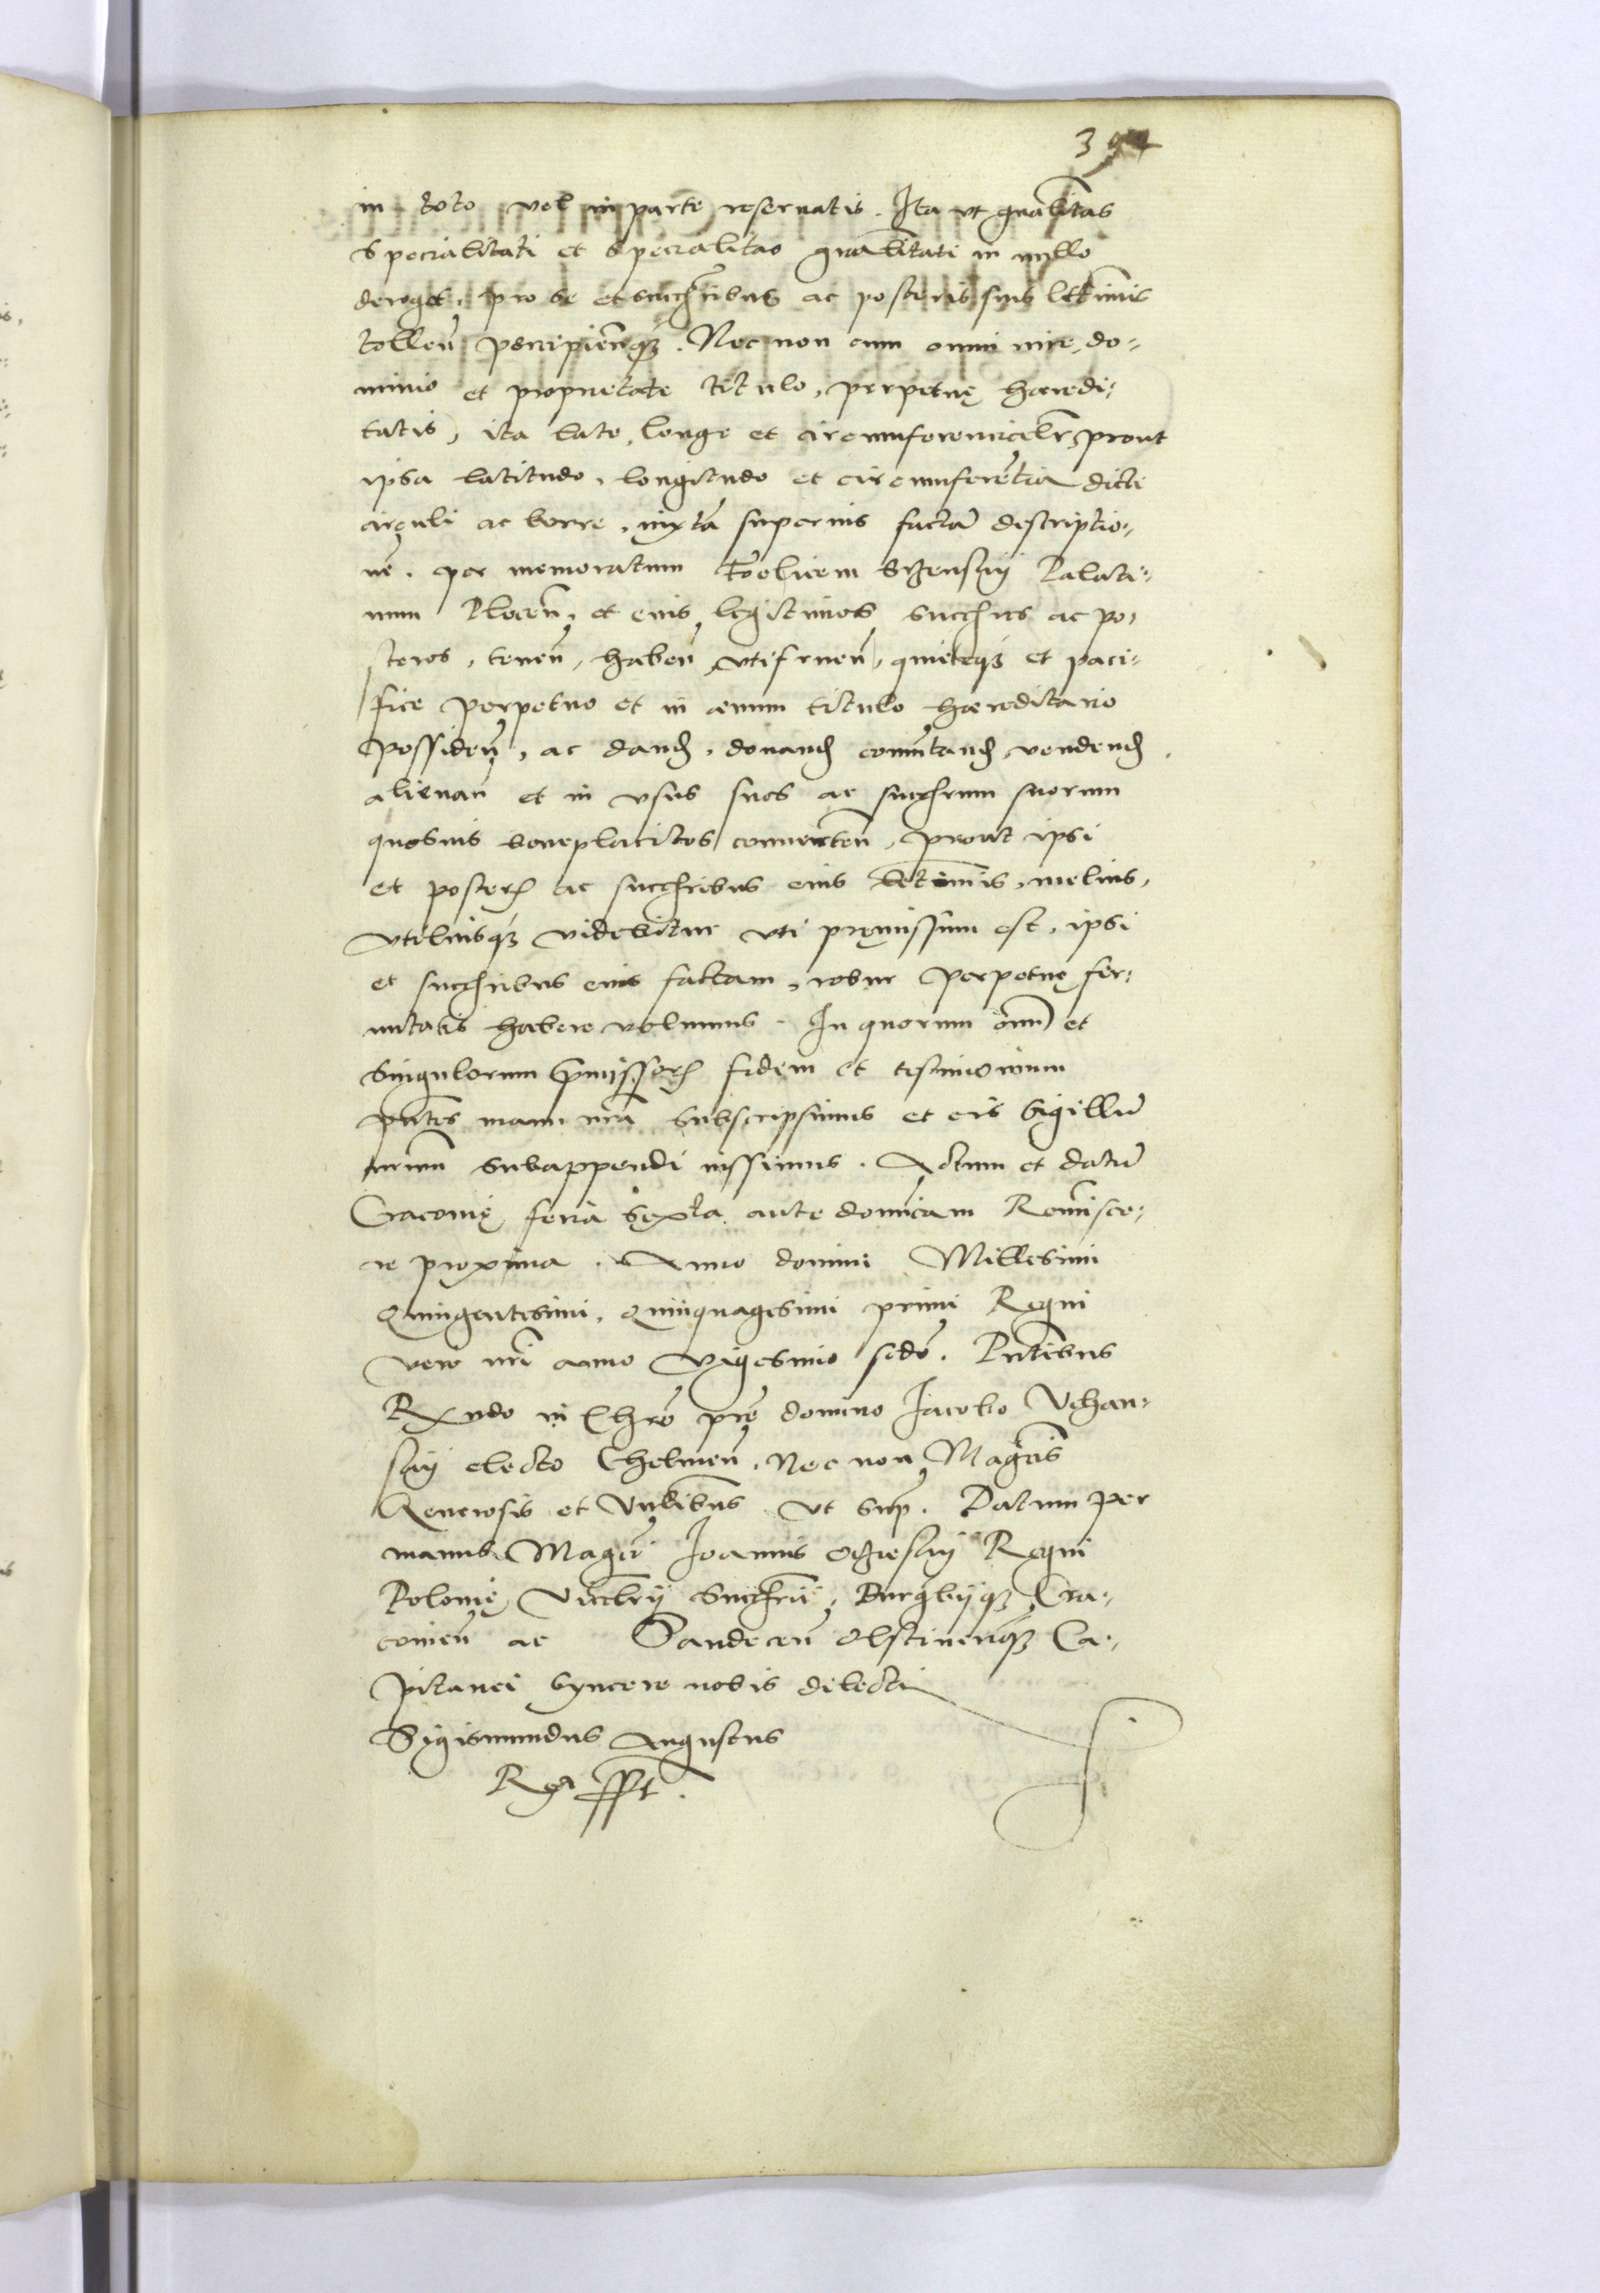 in toto vel in parte reseruatis. Ita vt gnalitas
specialitati et specialitas gnalitati in nullo
deroget, pro se et succribus ac posteris suis lttimis
tollen percipienqz. Nec non cum omni iure, do-
minio et proprietate titulo, perpetuę hæredi-
tatis, ita late, longe et circumferencialr, prout
ipsa latitudo, longitudo et circumferentia dicti
circuli ac terre, iuxta superius factā descriptio-
nē. per memoratum Felicem Srzensky Palati-
num Plocen, et eius legitimos succres ac po-
steros, tenen, haben vtifruen, quieteqz et paci-
fice perpetuo et in æuum titulo hæreditario
possiden, ac dand, donand comutand, vendend
alienan et in vsus suos ac succrum suorum
quosuis beneplacitos conuerten, prout ipsi
et posteris ac succribus eius lttimis, melius,
vtiliusqz videbitur vti pręmissum est, ipsi
et succribus eius factam, robur perpetuę fir-
mitatis habere volumus. In quorum omn et
singulorum pmissor fidem et testimonium
pntes manu nra subscripsimus et eis sigillū
nrum subappendi iussimus. Actum et datū
Cracouię feria sexta ante domicam Reminisce-
re proxima. Anno domini Millesimi
Quingentesimi, Quinquagesimi primi Regni
vero nri anno Vigesimo scdo. Pntibus
Rndo in Chro pre domino Iacobo Vchan-
sky electo Chelmen. Nec non Magcis
Generosis et Nobilibus vt sup. Datum per
manus Magci Ioannis Oczieski Regni
Polonię Vicclrii Succrii, Burgbiiqz Cra-
couien ac Sandecen Olstinenqz Ca-
pitanei syncere nobis dilecti
Sigismundus Augustus
Rex sspt.